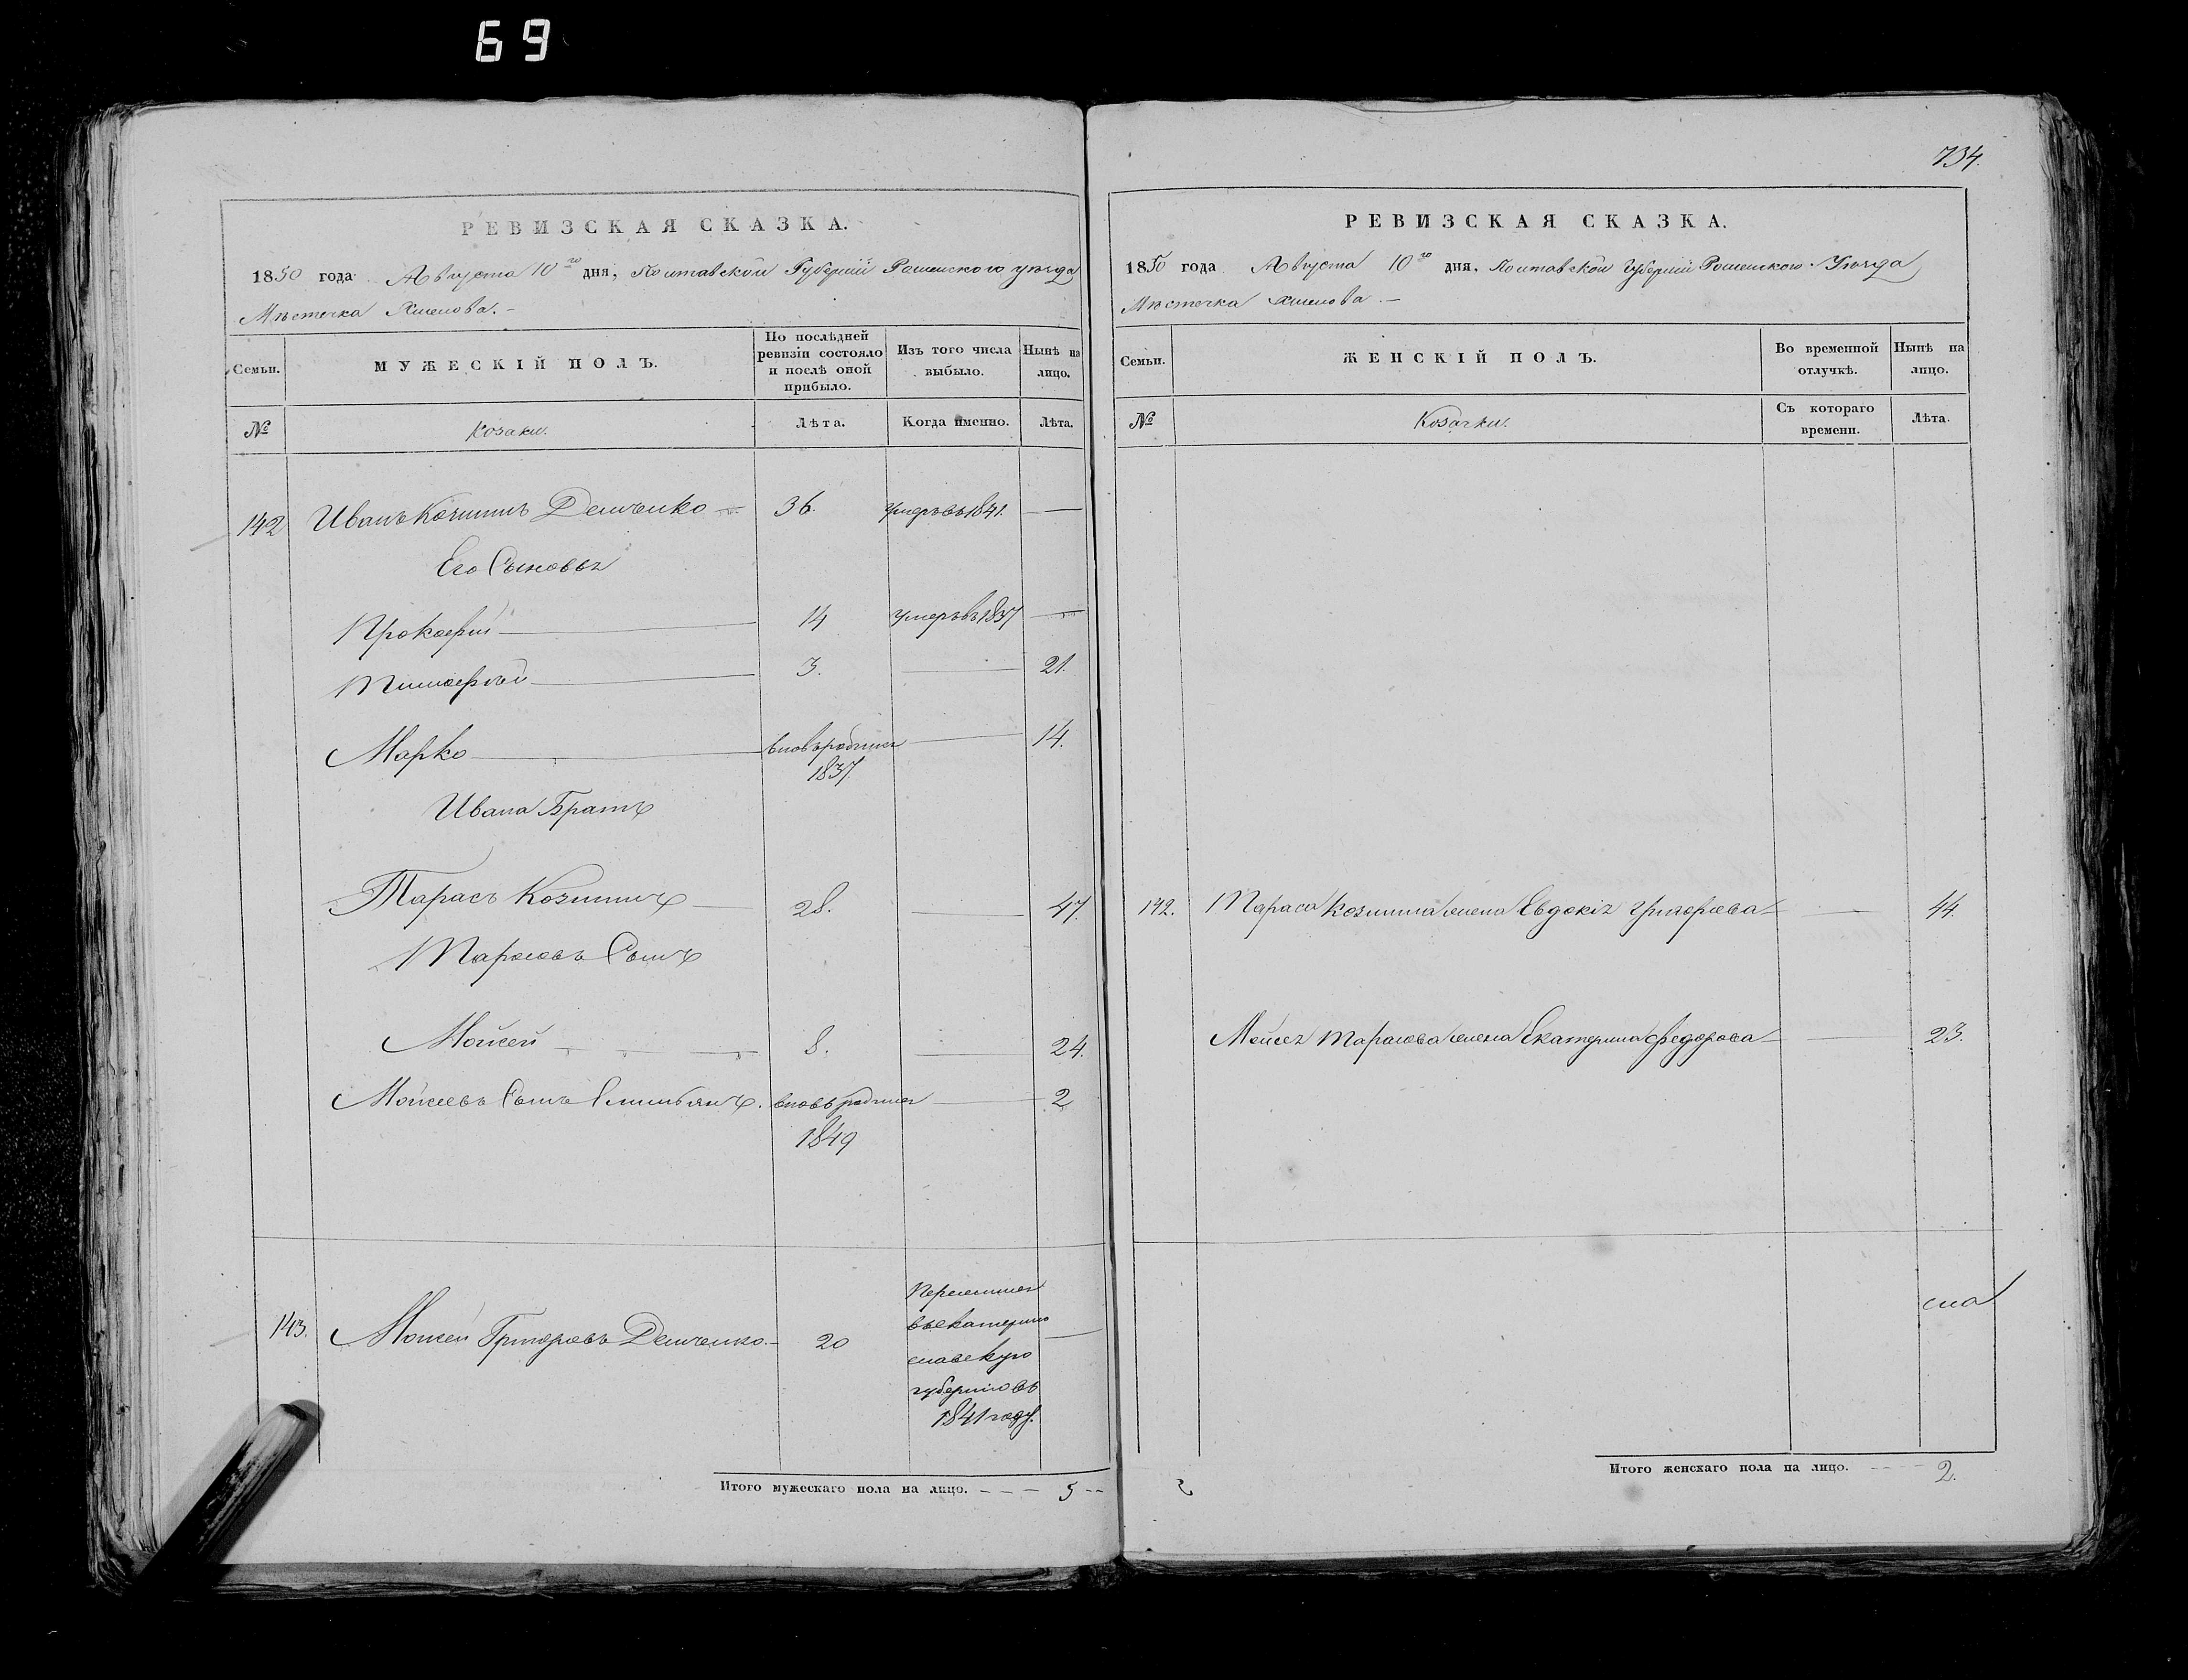 69
734.
РЕВИЗСКАЯ СКАЗКА.
1850 года Августа 10го дня, Полтавской Губернiи Роменского уѣзда
Мѣстечка Хмелова. –
Семьи.
МУЖЕСКІЙ ПОЛЪ.
По послѣдней ревизіи состояло и послѣ оной прибыло.
Изъ того числа выбыло.
Нынѣ на лицо.
№
Козаки.
Лѣта.
Когда именно.
Лѣта.
142 Иванъ Козминъ Демченко 36. умеръ въ 1841. —
Его Сыновья
Прокофій — 14 умеръ въ 1837 —
Тимофѣй — 3. — 21.
Марко — вновь родился — 14.
1837.
Ивана Братъ
Тарасъ Козминъ — 28. — 47.
Тарасовъ Сынъ
Мойсей — 8. — 24.
Мойсеевъ Сынъ Емельянъ. вновь родился — 2
1849
143. Мойсей Григорьевъ Демченко. – 20
Переселился
въ Екатерино
славскую
губернію въ
1841 году.
Итого мужескаго пола на лицо. – – – 5 – –
РЕВИЗСКАЯ СКАЗКА.
1850 года Августа 10го дня, Полтавской Губерніи Роменского Уѣзда
Мѣстечка Хмелова. –
Семьи.
ЖЕНСКІЙ ПОЛЪ.
Во временной отлучкѣ.
Нынѣ на лицо.
№
Козачки.
Съ котораго времени.
Лѣта.
142. Тараса Козмина жена Евдокія Григорьева — 44.
Мойсея Тарасова жена Екатерина Федорова — 23.
Итого женскаго пола на лицо. – – – 2.